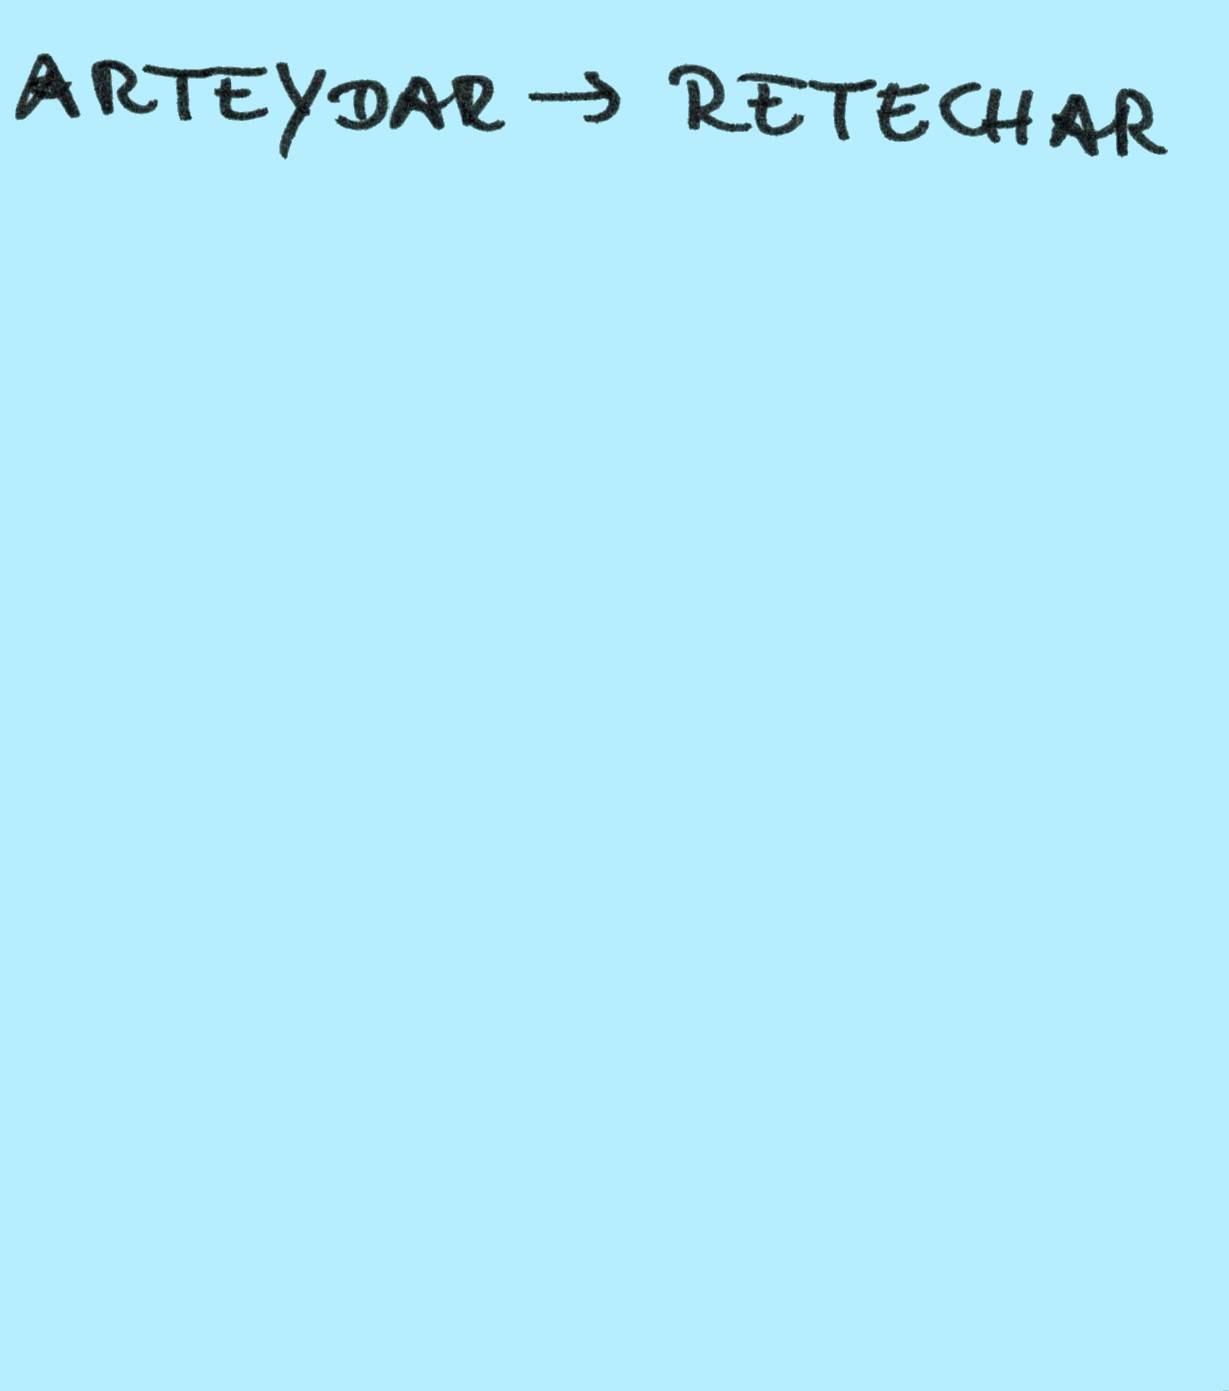 ARTEYDAR → RETECHAR